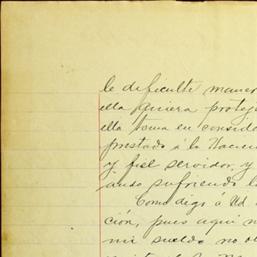 le dificulte maner
ella quiera proteg
ella toma en conside
prestado á la Hacien
y fiel servidor, y
sufriendo l
Como digo a Ud
ción, pues aqui n
mi sueldo no